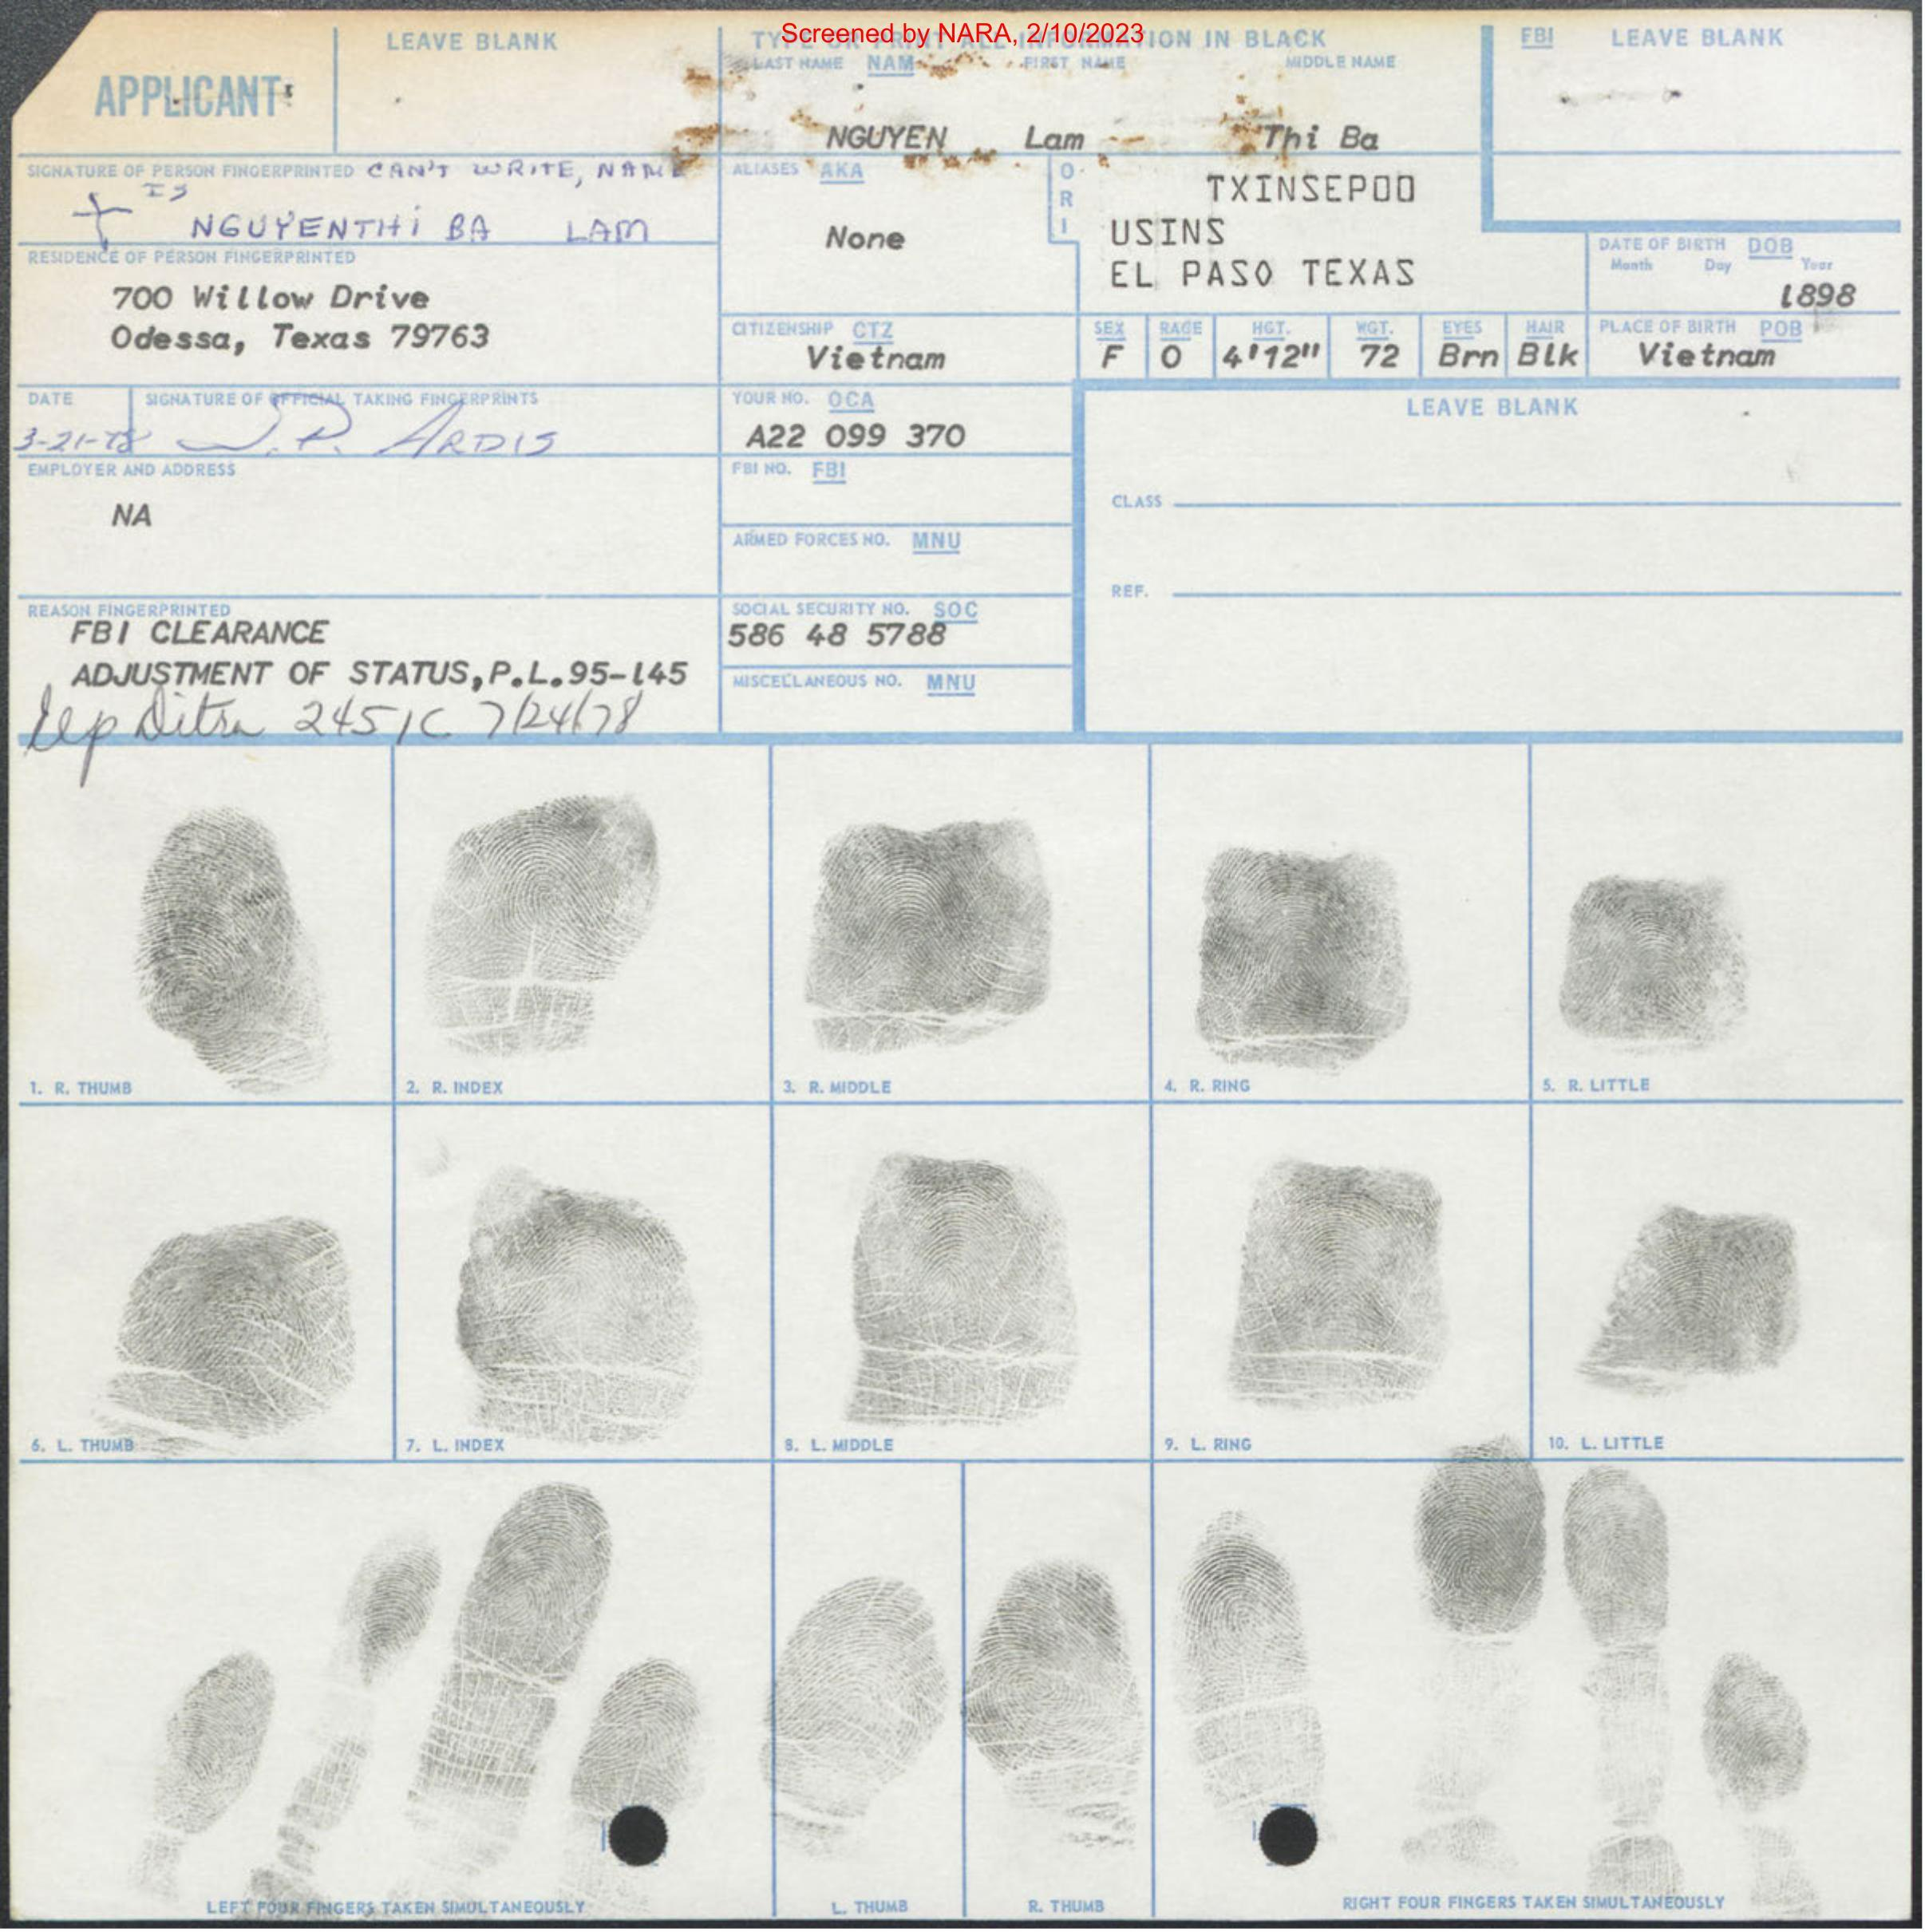 Screened by NARA, 2/10/2023
APPLICANT
LEAVE BLANK
TYPE OR PRINT ALL INFORMATION IN BLACK
LAST NAME NAM FIRST NAME MIDDLE NAME
NGUYEN Lam Thi Ba
FBI LEAVE BLANK
SIGNATURE OF PERSON FINGERPRINTED CAN'T WRITE, NAME
IS
NGUYENTHI BA LAM
ALIASES AKA
None
ORI
TXINSEPOO
USINS
EL PASO TEXAS
DATE OF BIRTH DOB
Month Day Year
1898
RESIDENCE OF PERSON FINGERPRINTED
700 Willow Drive
Odessa, Texas 79763
CITIZENSHIP CTZ
Vietnam
SEX
F
RACE
O
HGT.
4'12"
WGT.
72
EYES
Brn
HAIR
Blk
PLACE OF BIRTH POB
Vietnam
DATE
3-21-78
SIGNATURE OF OFFICIAL TAKING FINGERPRINTS
J.P. ARDIS
YOUR NO. OCA
A22 099 370
LEAVE BLANK
EMPLOYER AND ADDRESS
NA
FBI NO. FBI
CLASS
ARMED FORCES NO. MNU
REF.
REASON FINGERPRINTED
FBI CLEARANCE
ADJUSTMENT OF STATUS,P.L.95-145
245 7/24/78
SOCIAL SECURITY NO. SOC
586 48 5788
MISCELLANEOUS NO. MNU
1. R. THUMB
2. R. INDEX
3. R. MIDDLE
4. R. RING
5. R. LITTLE
6. L. THUMB
7. L. INDEX
8. L. MIDDLE
9. L. RING
10. L. LITTLE
LEFT FOUR FINGERS TAKEN SIMULTANEOUSLY
L. THUMB
R. THUMB
RIGHT FOUR FINGERS TAKEN SIMULTANEOUSLY